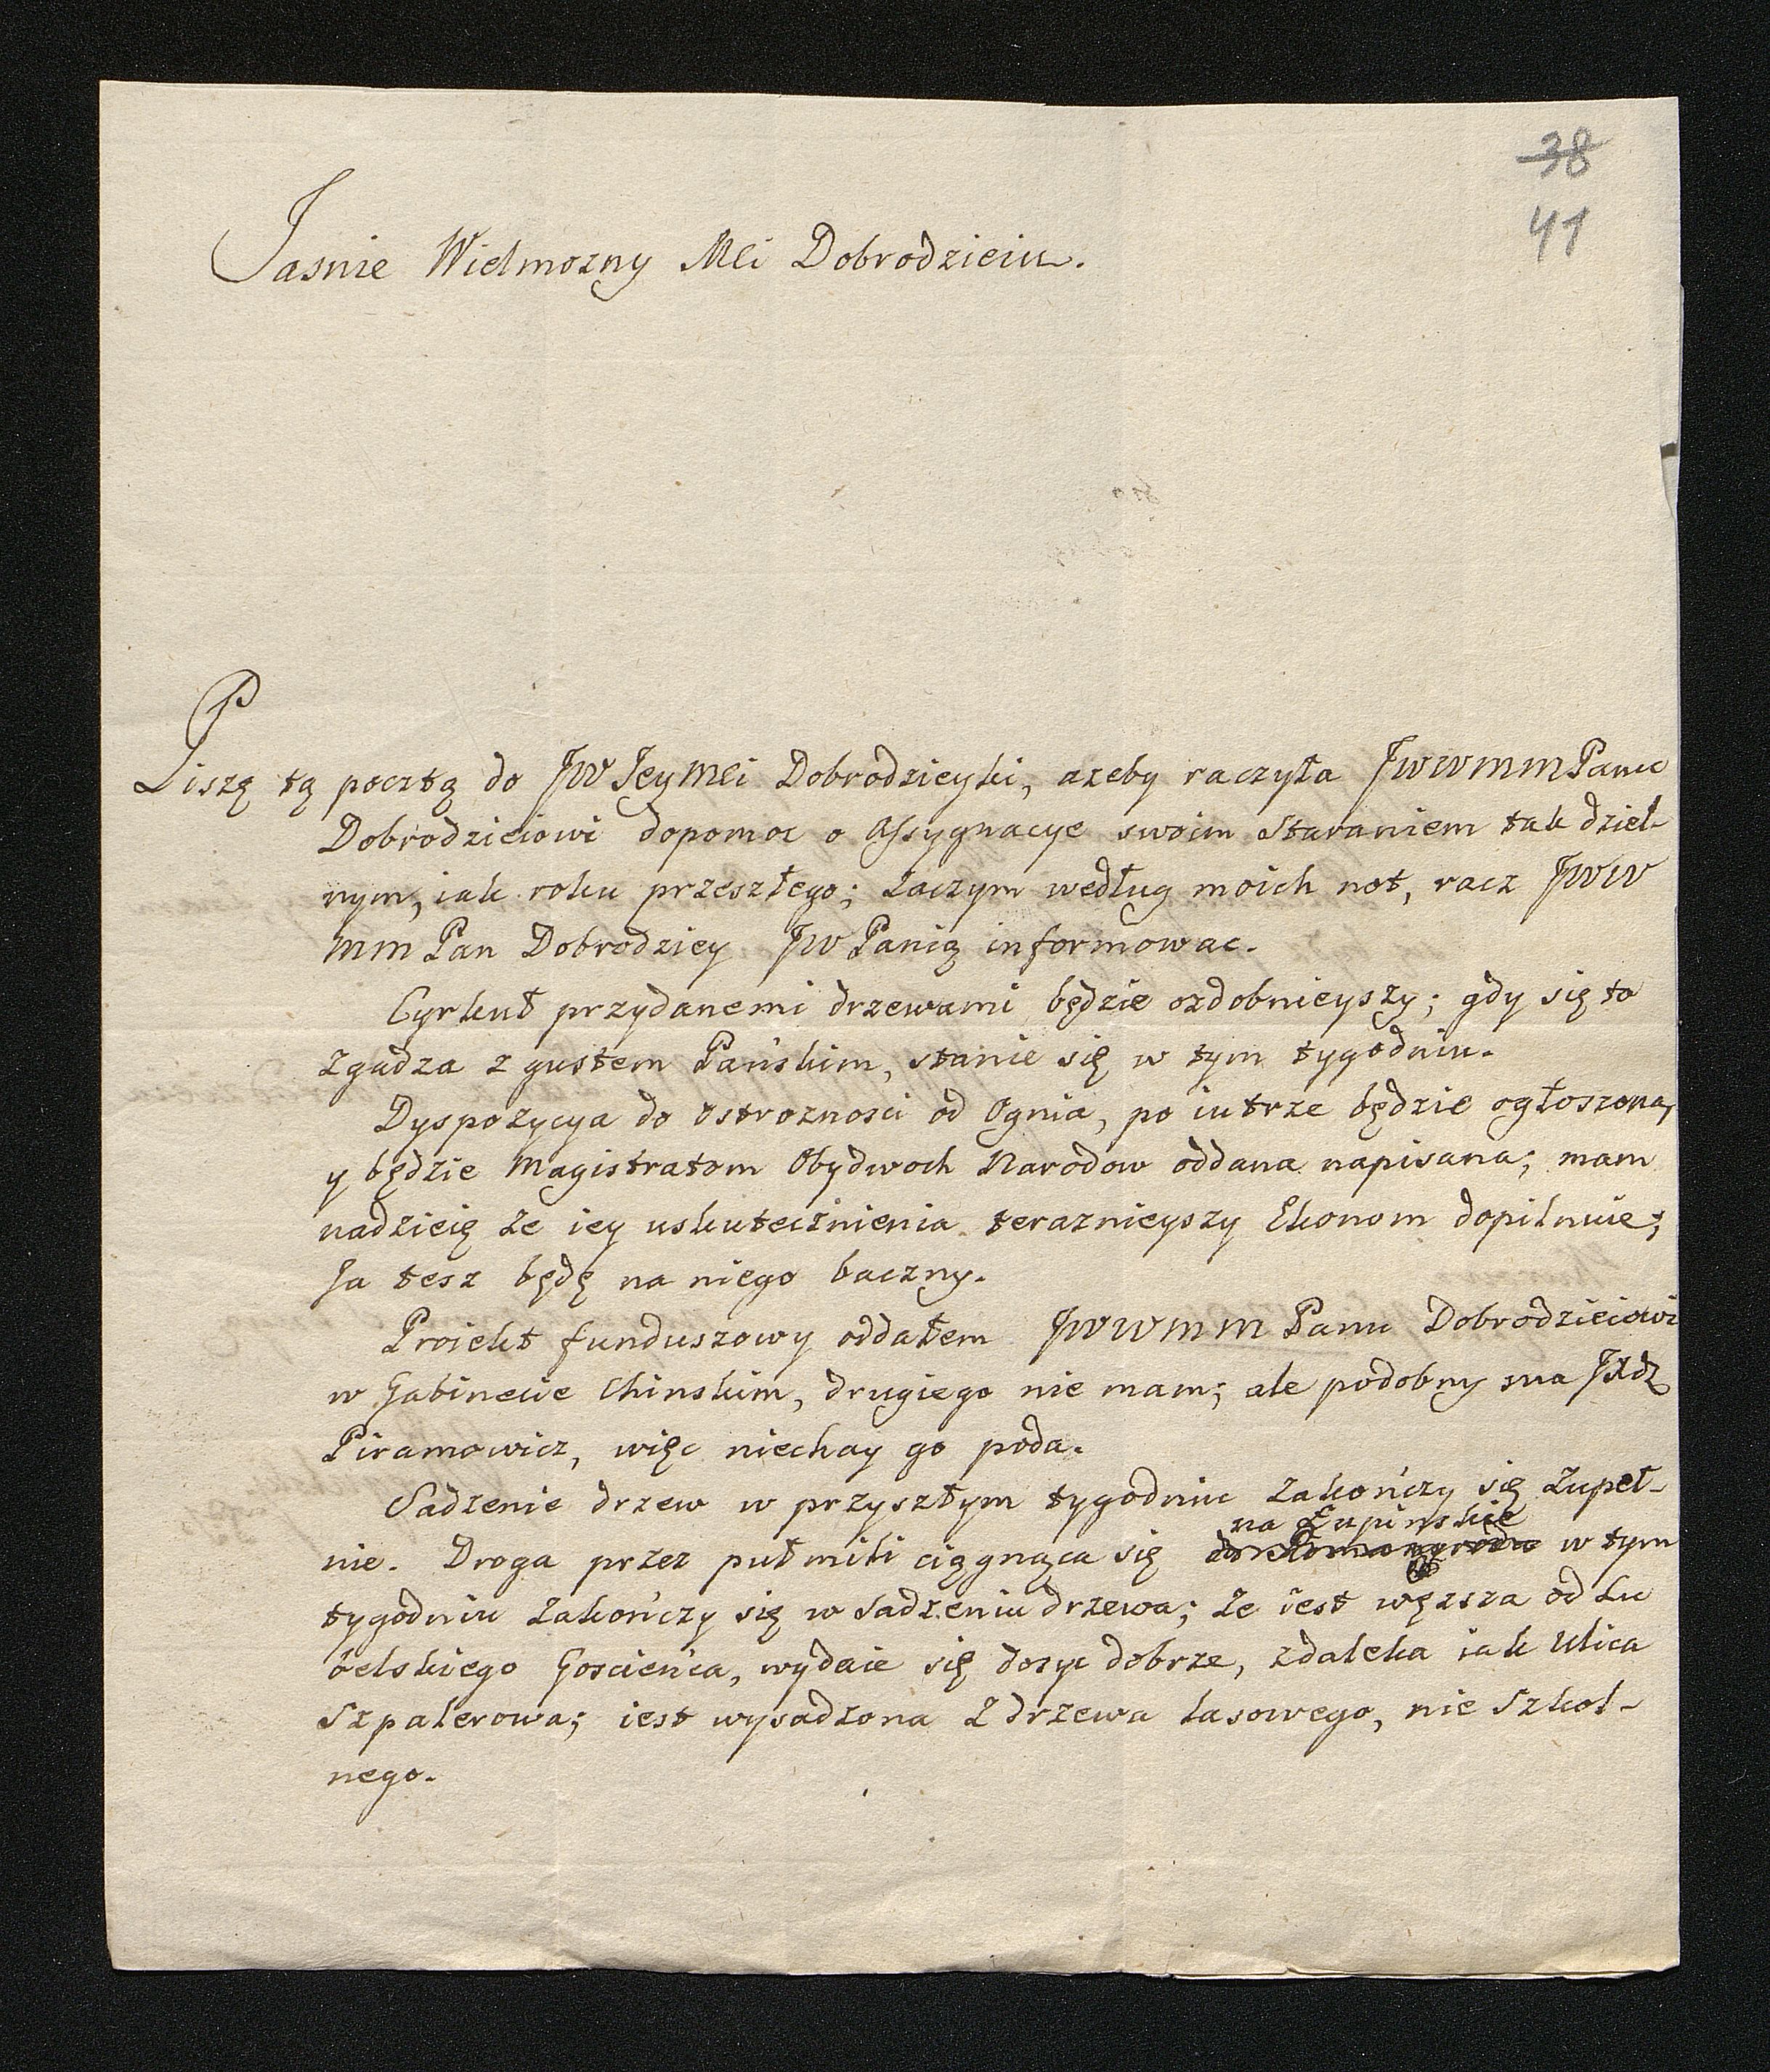 38
41
Jasnie Wielmozny Mci Dobrodzieiu.
Piszę tą pocztą do JW Jeymci Dobrodzieyki, azeby raczyła JWWMM Panu
Dobrodzieiowi dopomoc o Assygnacye swoim Staraniem tak dziel-
nym, iak roku przeszłego; Zaczym według moich not, racz JWW
MM Pan Dobrodziey JW Panią informowac.
Cyrkuł przydanemi drzewami będzie ozdobnieyszy; gdy się to
zgadza z gustem Pańskim, stanie się w tym tygodniu.
Dyspozycya do Ostroznosci od Ognia, po iutrze będzie ogłoszona,
y będzie Magistratom Obydwoch Narodow oddana napisana; mam
nadzieię ze iey uskutecznienia teraznieyszy Ekonom dopilnuie;
Ja tesz będę na niego baczny.
Proiekt funduszowy oddałem JWWMM Panu Dobrodzieiowi
w Gabinecie Chinskim, drugiego nie mam; ale podobny ma JXdz
Piramowicz, więc niechay go poda.
Sadzenie drzew w przyszłym tygodniu Zakończy się Zupeł-
na Łupinskie
nie. Droga przez puł mili ciągnąca się w tym
tygodniu Zakończy się w Sadzeniu drzewa; Ze iest węzsza od Lu
belskiego Goscieńca, wydaie się dosyc dobrze, zdaleka iak Ulica
Szpalerowa; iest wysadzona Z drzewa lasowego, nie Szkol-
nego.